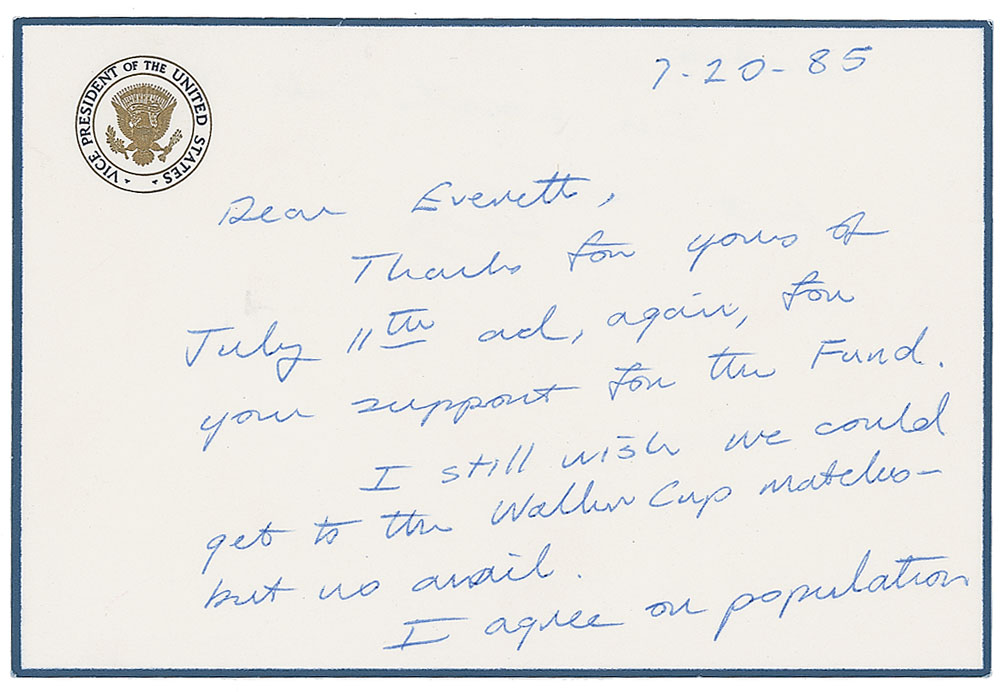 VICE PRESIDENT OF THE UNITED STATES
7-20-85
Dear Everett,
Thanks for yours of
July 11th ad, again, for
your support for the Fund.
I still wish we could
get to the Walker Cup matches-
but no avail.
I agree on population